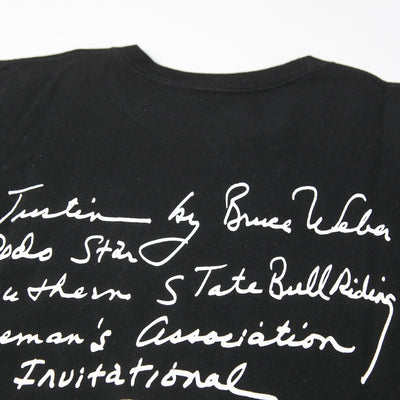 Justin by Bruce Weber
Rodo Star
uthern STate Bull Riding
eman's Association
Invitational